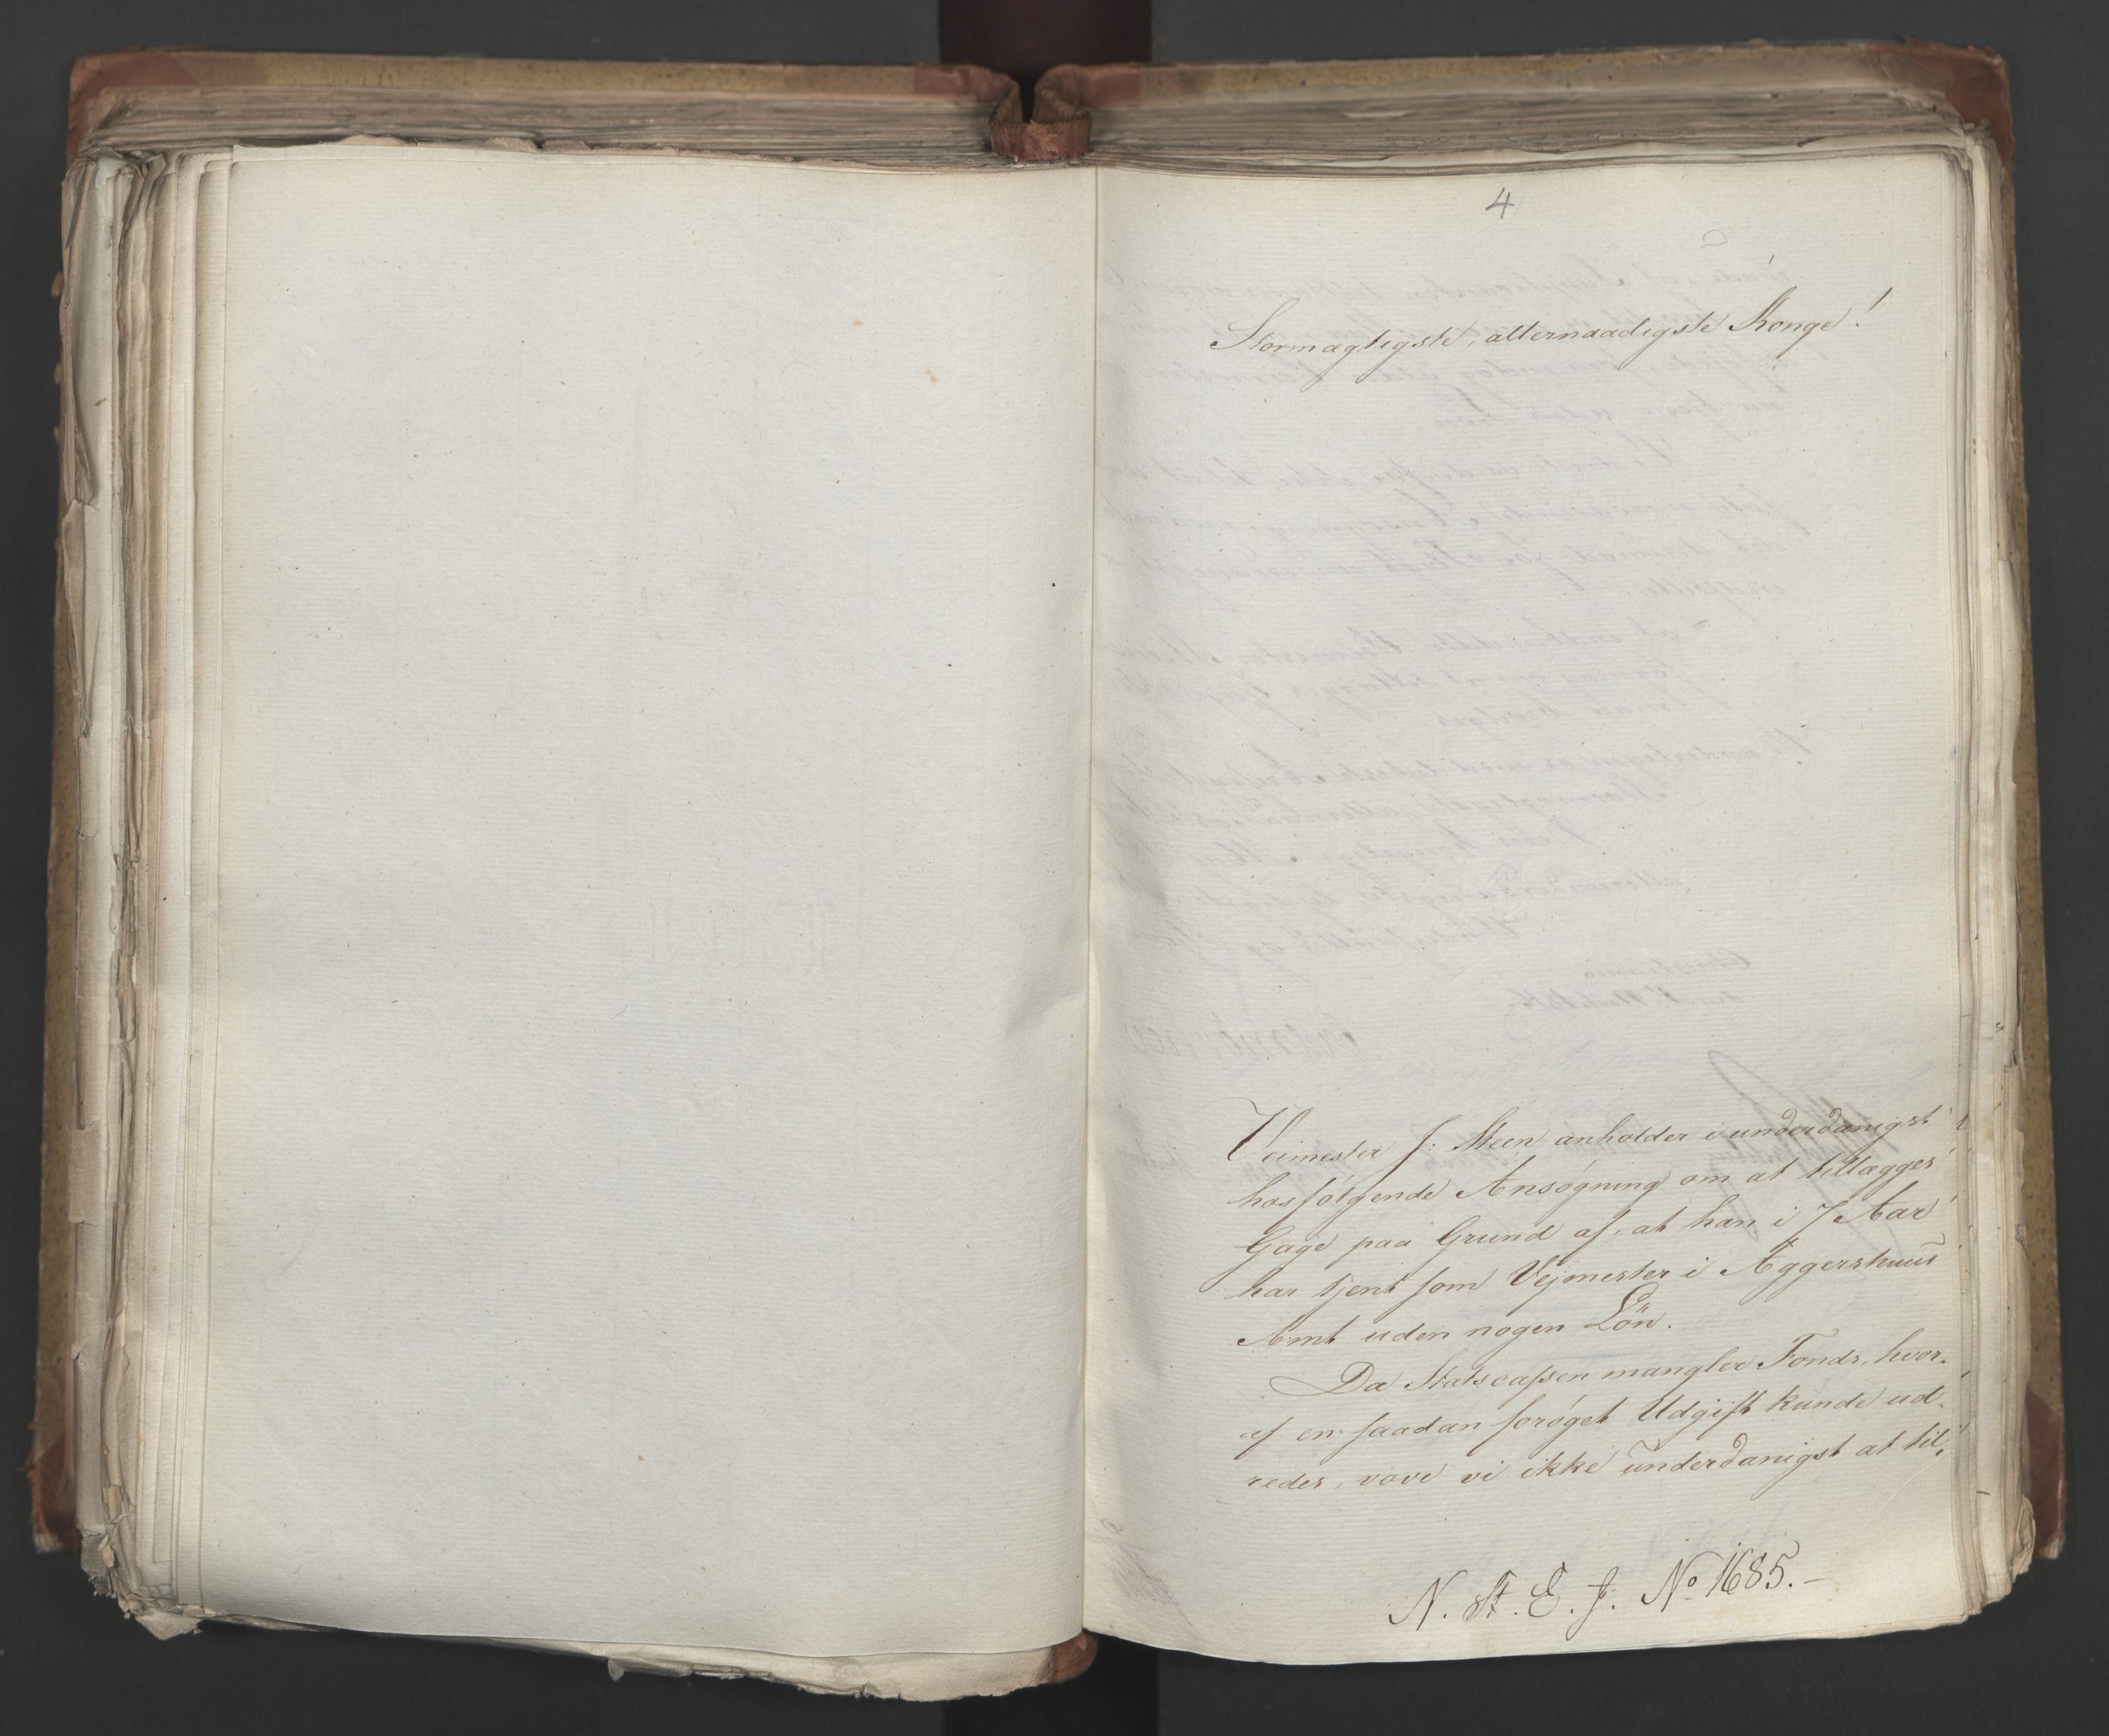 4
Stormægtigste, allernaadigste Konge!
Veimester J: Steen anholder i underdanigst
hosfølgende Ansøgning om at tillægges
Gage paa Grund af, at han i 7 Aar
har tjent som Vejmester i Aggershuus
Amt uden nogen Lön.
Da Statscassen mangler Fonds, hvor-
af en saadan forøget Udgift kunde ud-
redes, vove vi ikke underdanigst at til-
N. St. E. J. No 1685.-